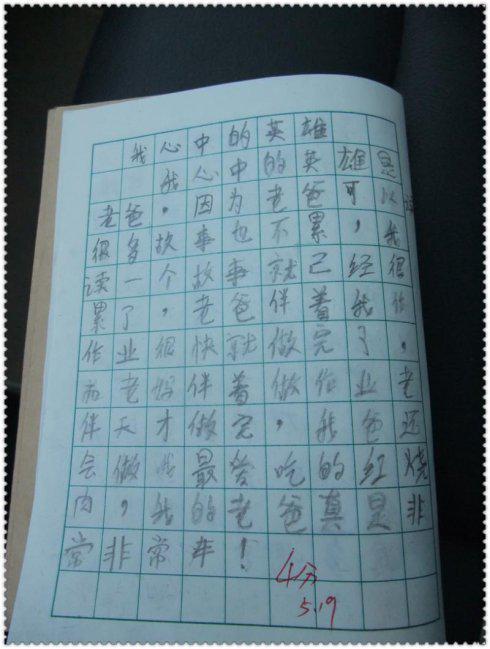 我心中的英雄
我心中的英雄是
老爸,因为老爸可以读
很多故事也不累,我
读一个故事就已经很
累了,老爸伴着我作
作业很快就做完了,
而老妈伴着做作业老
伴天才做完,我爸还
会做我最爱吃的红烧
肉,我的老爸真是非
常非常牛!
4分
5.19